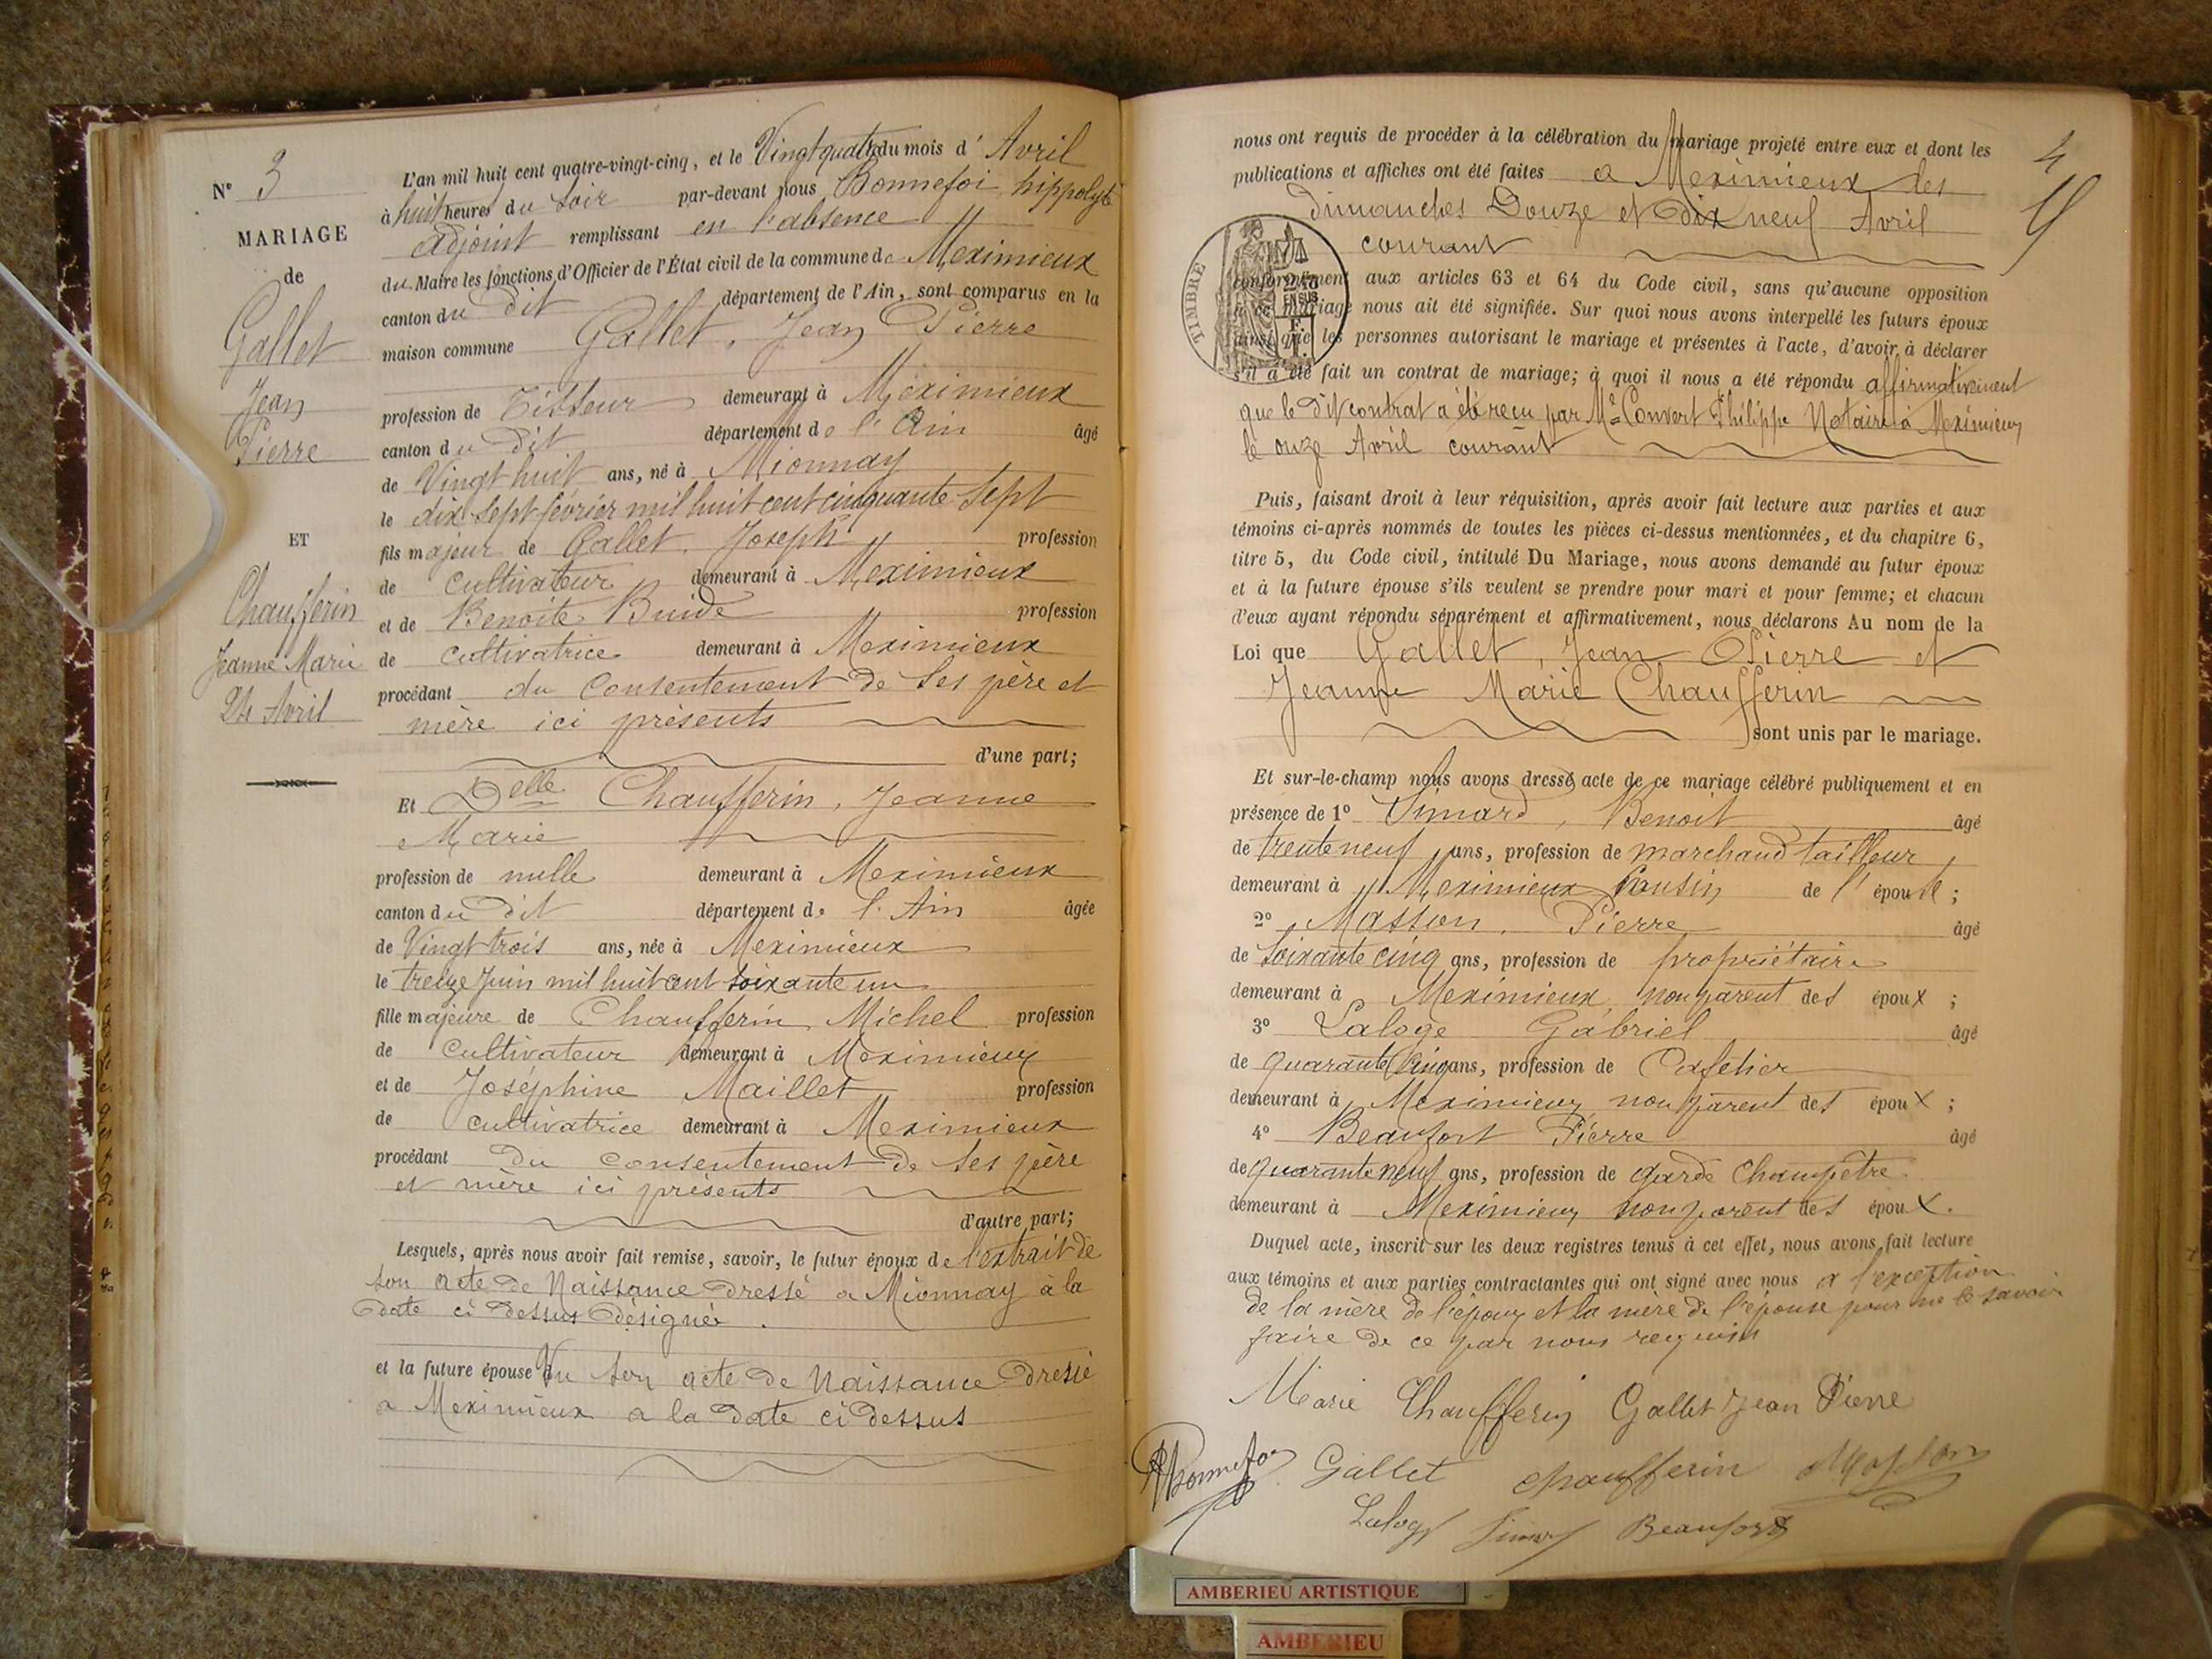 N° 3
MARIAGE
de
Gallet
Jean
Pierre
ET
Chaufferin
Jeanne Marie
24 Avril
L'an mil huit cent quatre-vingt-cinq, et le Vingt quatre du mois d' Avril
à huit heures du Soir par-devant nous Bonnefoi hippolyte
adjoint remplissant en l'absence
du Maire les fonctions d'Officier de l'État civil de la commune de Meximieux
canton du dit département de l'Ain, sont comparus en la
maison commune Gallet, Jean Pierre
profession de Tisseur demeurant à Meximieux
canton du dit département de l'Ain âgé
de Vingt huit ans, né à Mionnay
le dix sept février mil huit cent cinquante sept
fils majeur de Gallet, Joseph profession
de cultivateur demeurant à Meximieux
et de Benoite Buide profession
de cultivatrice demeurant à Meximieux
procédant du consentement de ses père et
mère ici présents
d'une part;
Et Delle Chaufferin, Jeanne
Marie
profession de nulle demeurant à Meximieux
canton du dit département de l'Ain âgée
de Vingt trois ans, née à Meximieux
le treize Juin mil huit cent soixante un
fille majeure de Chaufferin Michel profession
de cultivateur demeurant à Meximieux
et de Joséphine Maillet profession
de cultivatrice demeurant à Meximieux
procédant du consentement de ses père
et mère ici présents
d'autre part;
Lesquels, après nous avoir fait remise, savoir, le futur époux de l'extrait de
son acte de Naissance dressé a Mionnay à la
date ci dessus désignée.
et la future épouse Vu son acte de Naissance dressé
a Meximieux a la date ci dessus
4
nous ont requis de procéder à la célébration du mariage projeté entre eux et dont les
publications et affiches ont été faites a Meximieux les
dimanches Douze et Dix neuf Avril
courant
TIMBRE
conformément aux articles 63 et 64 du Code civil, sans qu'aucune opposition
à ce mariage nous ait été signifiée. Sur quoi nous avons interpellé les futurs époux
ainsi que les personnes autorisant le mariage et présentes à l'acte, d'avoir à déclarer
s'il a été fait un contrat de mariage; à quoi il nous a été répondu affirmativement
que le dit contrat a été reçu par Me Convert Philippe Notaire à Meximieux
le onze Avril courant
Puis, faisant droit à leur réquisition, après avoir fait lecture aux parties et aux
témoins ci-après nommés de toutes les pièces ci-dessus mentionnées, et du chapitre 6,
titre 5, du Code civil, intitulé Du Mariage, nous avons demandé au futur époux
et à la future épouse s'ils veulent se prendre pour mari et pour femme; et chacun
d'eux ayant répondu séparément et affirmativement, nous déclarons Au nom de la
Loi que Gallet, Jean Pierre et
Jeanne Marie Chaufferin
sont unis par le mariage.
Et sur-le-champ nous avons dressé acte de ce mariage célébré publiquement et en
présence de 1° Simard, Benoit âgé
de trente neuf ans, profession de marchand tailleur,
demeurant à Meximieux Cousin de l' épouse;
2° Masson, Pierre âgé
de soixante cinq ans, profession de propriétaire
demeurant à Meximieux non parent des époux;
3° Laloge Gabriel âgé
de quarante cinq ans, profession de Cafetier
demeurant à Meximieux non parent des époux;
4° Beaufort Pierre âgé
de quarante neuf ans, profession de garde champêtre
demeurant à Meximieux non parent des époux.
Duquel acte, inscrit sur les deux registres tenus à cet effet, nous avons fait lecture
aux témoins et aux parties contractantes qui ont signé avec nous a l'exception
de la mère de l'époux et la mère de l'épouse pour ne le savoir
faire de ce par nous requis
Marie Chaufferin Gallet Jean Pierre
Bonnefoi Gallet chaufferin Masson
Laloge Simard Beaufort
AMBERIEU ARTISTIQUE
AMBERIEU